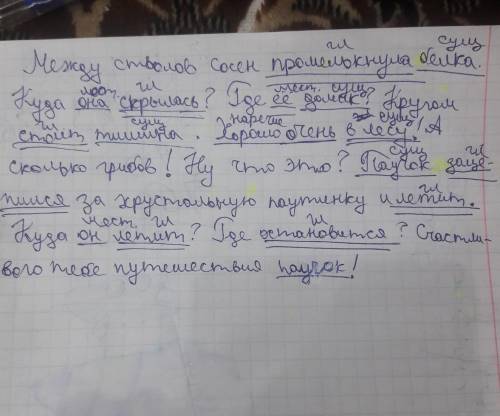 гл сущ
Между стволов сосен промелькнула белка.
мест. гл мест. сущ
Куда она скрылась? Где её домик? Кругом
гл сущ наречие сущ
стоит тишина. Хорошо очень в лесу! А
сущ гл
сколько грибов! Ну что это? Паучок заце-
гл
пился за хрустальную паутинку и летит.
мест гл гл
Куда он летит? Где остановится? Счастли-
вого тебе путешествия паучок!